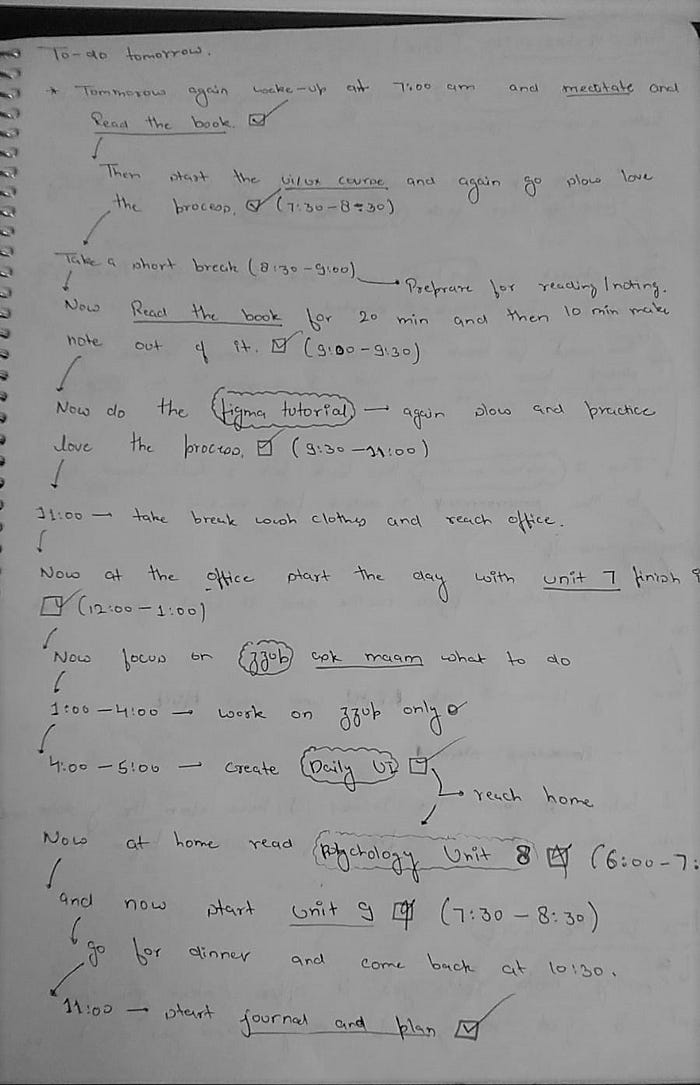 To-do tomorrow.
* Tommorow again wake-up at 7:00 am and meditate and
Read the book. ☑
Then start the ui/ux course and again go slow love
the process. ☑ (7:30-8:30)
Take a short break (8:30-9:00) → Prepare for reading/noting.
Now Read the book for 20 min and then 10 min make
note out of it. ☑ (9:00-9:30)
Now do the figma tutorial → again slow and practice
love the process. ☑ (9:30-11:00)
11:00 → take break wash clothes and reach office.
Now at the office start the day with unit 7 finish
☑ (12:00-1:00)
Now focus on zzub ask maam what to do
1:00-4:00 → work on zzub only
4:00-5:00 → create Daily UI ☑
→ reach home
Now at home read Psychology Unit 8 ☑ (6:00-7:
and now start unit 9 (7:30-8:30)
go for dinner and come back at 10:30.
11:00 → start journal and plan ☑